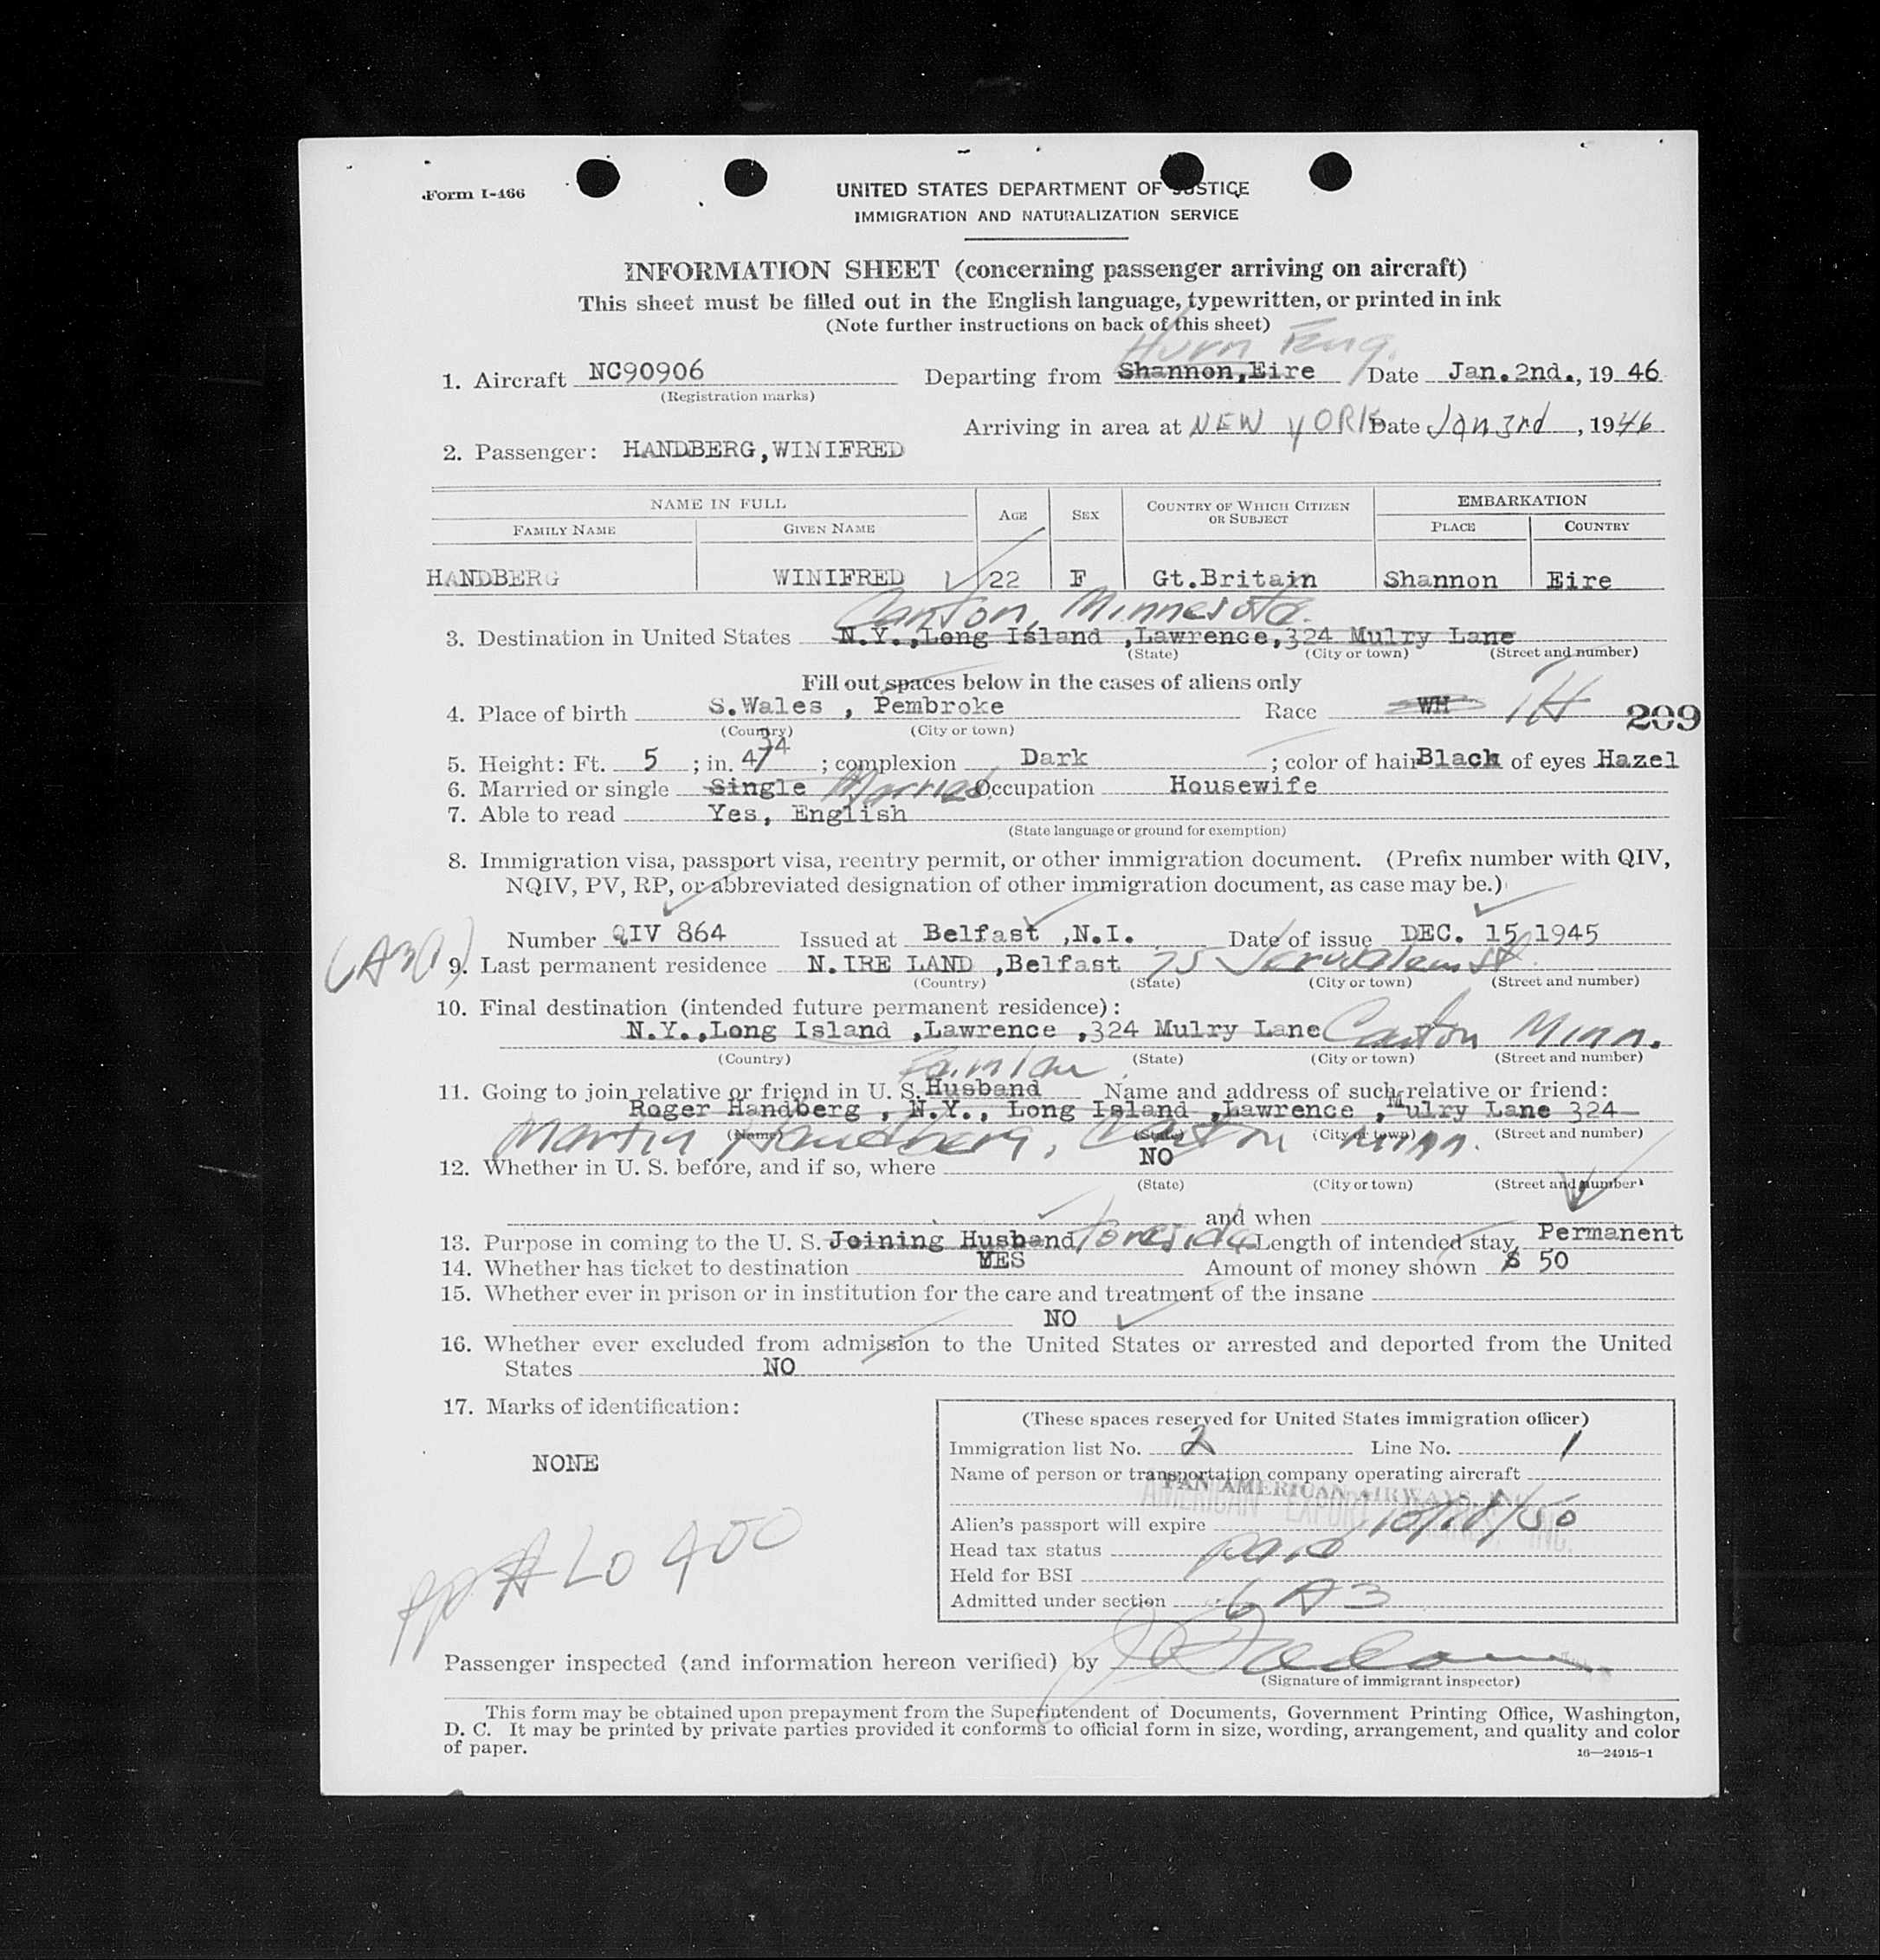 Form I-466
UNITED STATES DEPARTMENT OF JUSTICE
IMMIGRATION AND NATURALIZATION SERVICE
INFORMATION SHEET (concerning passenger arriving on aircraft)
This sheet must be filled out in the English language, typewritten, or printed in ink
(Note further instructions on back of this sheet)
Hurn Eng.
1. Aircraft NC90906 Departing from Shannon,Eire Date Jan.2nd., 19 46
(Registration marks)
Arriving in area at NEW YORK Date Jan 3rd , 1946
2. Passenger: HANDBERG,WINIFRED
NAME IN FULL AGE SEX COUNTRY OF WHICH CITIZEN OR SUBJECT EMBARKATION
FAMILY NAME GIVEN NAME PLACE COUNTRY
HANDBERG WINIFRED 22 F Gt.Britain Shannon Eire
Canton, Minnesota.
3. Destination in United States N.Y.,Long Island ,Lawrence,324 Mulry Lane
(State) (City or town) (Street and number)
Fill out spaces below in the cases of aliens only
4. Place of birth S.Wales , Pembroke Race WH 209
(Country) (City or town)
5. Height: Ft. 5 ; in. 4 3/4 ; complexion Dark ; color of hair Black of eyes Hazel
6. Married or single Single Married Occupation Housewife
7. Able to read Yes, English
(State language or ground for exemption)
8. Immigration visa, passport visa, reentry permit, or other immigration document. (Prefix number with QIV,
NQIV, PV, RP, or abbreviated designation of other immigration document, as case may be.)
Number QIV 864 Issued at Belfast ,N.I. Date of issue DEC. 15 1945
9. Last permanent residence N.IRE LAND ,Belfast 75 Jerusalem St.
(Country) (State) (City or town) (Street and number)
10. Final destination (intended future permanent residence):
N.Y.,Long Island ,Lawrence ,324 Mulry Lane Canton Minn.
(Country) (State) (City or town) (Street and number)
11. Going to join relative or friend in U. S. Husband Name and address of such relative or friend:
Roger Handberg , N.Y., Long Island ,Lawrence ,Mulry Lane 324
(Name) (State) (City or town) (Street and number)
Martin Handberg, Canton Minn.
12. Whether in U. S. before, and if so, where NO
(State) (City or town) (Street and number)
and when
13. Purpose in coming to the U. S. Joining Husband, to reside Length of intended stay, Permanent
14. Whether has ticket to destination YES Amount of money shown $ 50
15. Whether ever in prison or in institution for the care and treatment of the insane
NO
16. Whether ever excluded from admission to the United States or arrested and deported from the United
States NO
17. Marks of identification:
NONE
(These spaces reserved for United States immigration officer)
Immigration list No. 2 Line No. 1
Name of person or transportation company operating aircraft
PAN AMERICAN AIRWAYS, INC
AMERICAN EXPORT AIRLINES, INC.
Alien's passport will expire 10/18/50
Head tax status paid
Held for BSI
Admitted under section 6 A3
pp# LO 400
Passenger inspected (and information hereon verified) by
(Signature of immigrant inspector)
This form may be obtained upon prepayment from the Superintendent of Documents, Government Printing Office, Washington,
D. C. It may be printed by private parties provided it conforms to official form in size, wording, arrangement, and quality and color
of paper.
16—24915-1